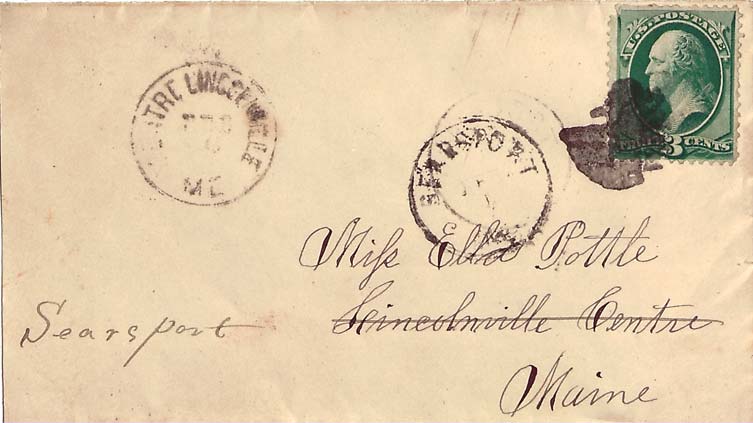 U.S. POSTAGE
3 CENTS
CENTRE LINCOLNVILLE
FEB
ME
SEARSPORT
Miss Ella Pottle
Lincolnville Centre
Maine
Searsport